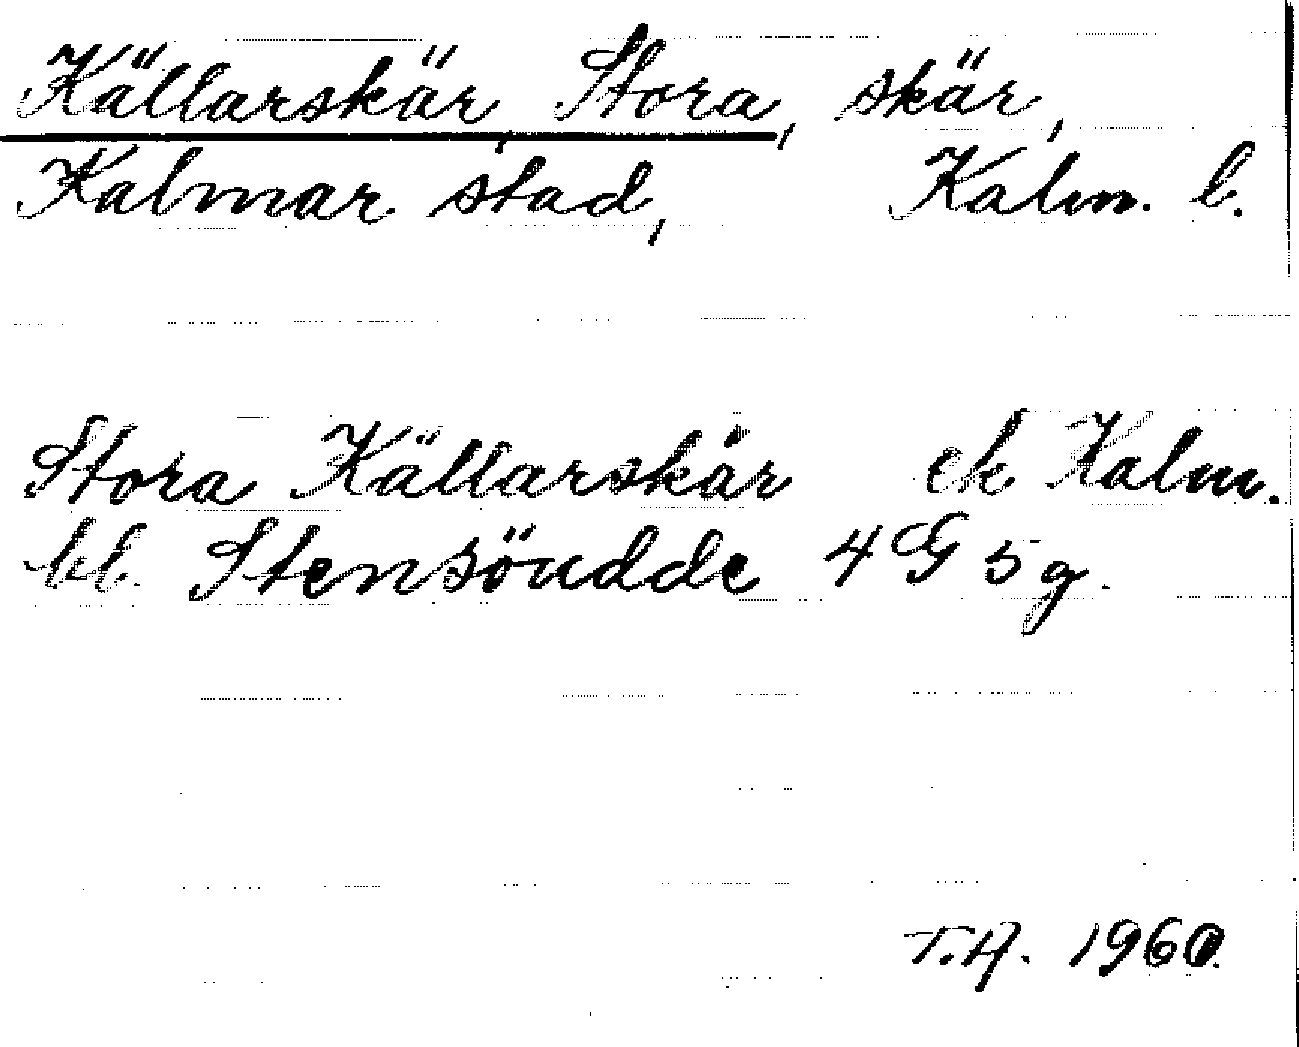 Källarskär, Stora, skär,
Kalmar stad, Kalm. l.
Stora Källarskär ek Kalm.
bl. Stensöudde 4 G 5 g.
T.A. 1960